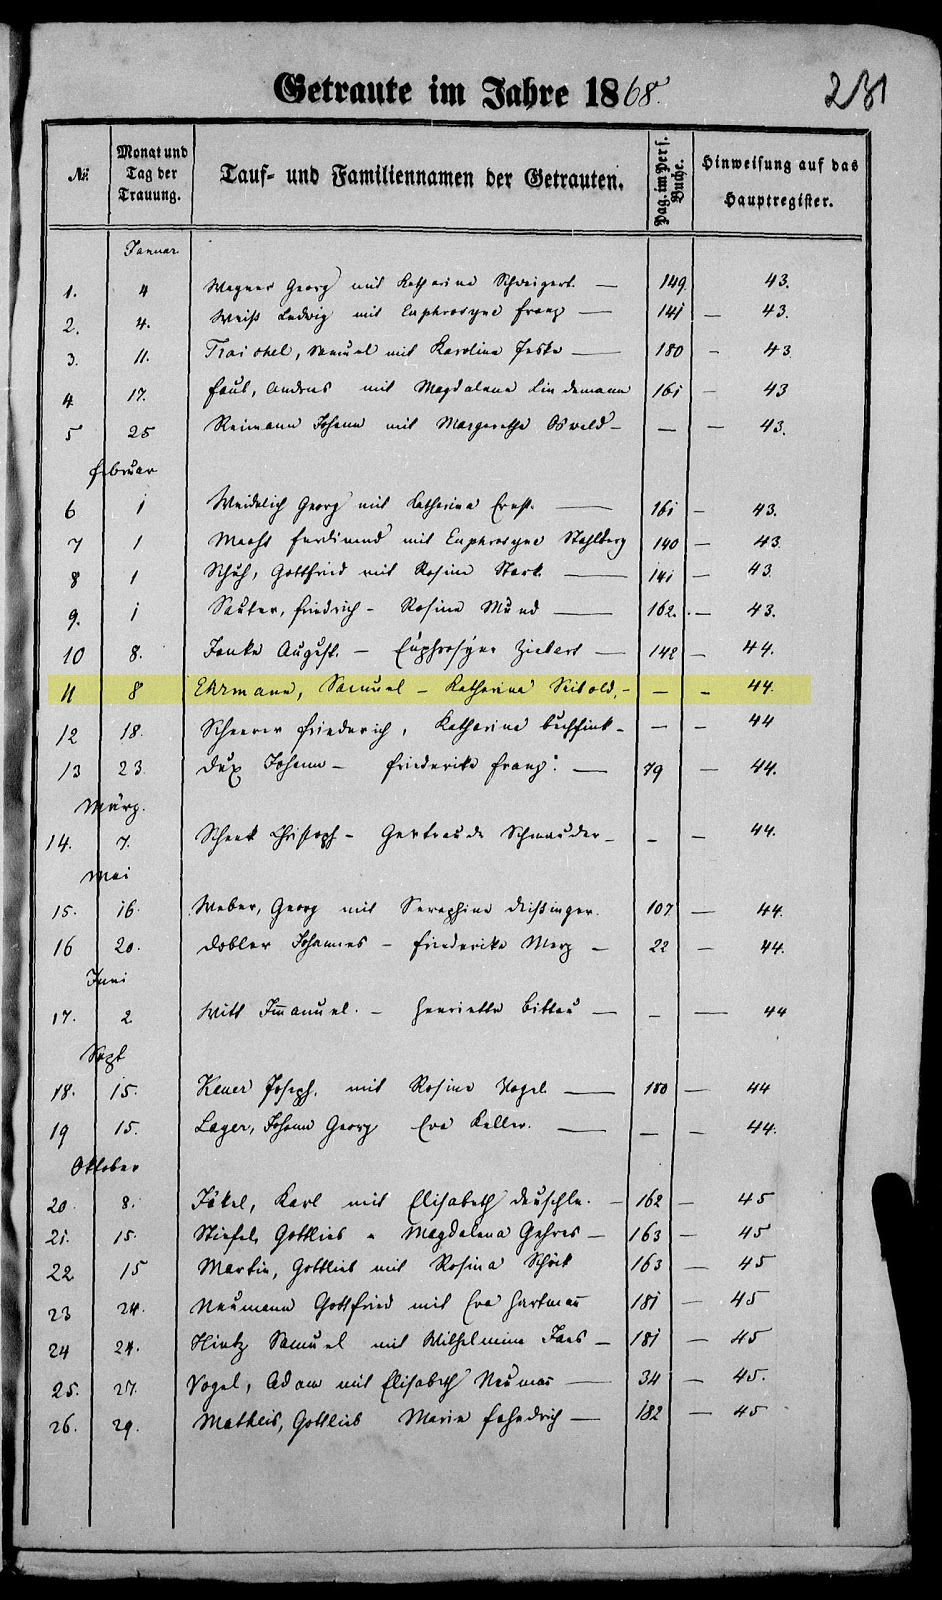 Getraute im Jahre 1868.
231
№
Monat und Tag der Trauung.
Tauf- und Familiennamen der Getrauten.
Pag. im Pers. Buche.
Hinweisung auf das Hauptregister.
Januar
1. 4 Wagner Georg mit Katharina Schweigert. — 149 43.
2. 4. Weiß Ludwig mit Euphrosyne Franz — 141 — 43.
3. 11. Traichel, Samuel mit Karolina Jeske — 180 — 43
4 17. Faul, Andreas mit Magdalena Lindemann 161 — 43
5 25 Reimann Johann mit Margaretha Oswald — — — 43.
Februar
6 1 Weidelich Georg mit Katharina Ernst. — 161 — 43.
7 1 Macht Ferdinand mit Euphrosyne Stahlberg 140 — 43
8 1 Schuh, Gottfried mit Rosina Stark — 141 — 43
9. 1 Sauter, Friedrich — Rosina Mund — 162. — 43.
10 8. Janke August. — Euphrosyne Ziebart — 142 — 44.
11 8 Ehrmann, Samuel — Katharina Seibold, — — — 44.
12 18. Scheerer Friederich, Katharina Buchfink — — — 44
13 23 Dux Johann — Friederike Franz. — 79 — 44.
März.
14. 7. Schenk Christoph — Gertraude Schmauder — — — 44.
Mai
15. 16. Weber, Georg mit Seraphina Deißinger. 107 — 44.
16 20. Dobler Johannes — Friederike Merz — 22 — 44.
Juni
17. 2 Witt Immanuel. — Henriette Bittau — — — 44
Sept
18. 15. Keuer Joseph. mit Rosina Vogel — 180 — 44
19 15. Lager, Johann Georg Eva Keller. — — — 44.
Oktober
20 8. Jökel, Karl mit Elisabeth Deuschle. — 162 — 45
21. 15. Stiefel Gottlieb " Magdalena Gehres — 163 — 45
22 15 Martin, Gottlieb mit Rosina Schöck 163 — 45
23 24. Neumann Gottfried mit Eva Hartmann 181 — 45
24 24. Hintz Samuel mit Wilhelmine Jans — 181 — 45
25. 27. Vogel, Adam mit Elisabeth Neuman — 34 — 45.
26. 29. Matheis, Gottlieb Maria Fähndrich — 182 — 45